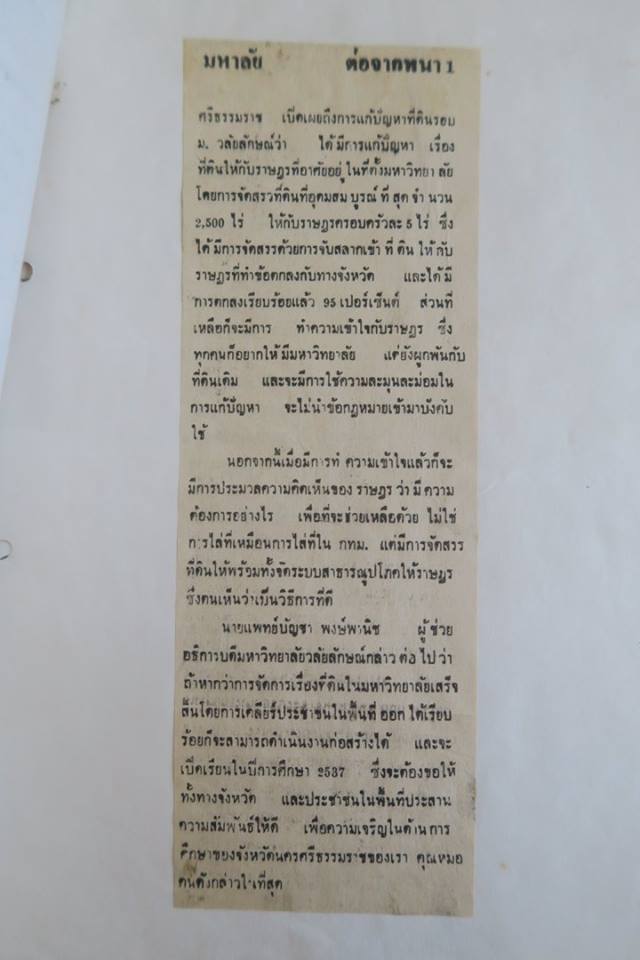 มหาลัย ต่อจากหน้า 1
ศรีธรรมราช เปิดเผยถึงการแก้ปัญหาที่ดินรอบ
ม. วลัยลักษณ์ว่า ได้มีการแก้ปัญหา เรื่อง
ที่ดินให้กับราษฎรที่อาศัยอยู่ ในที่ตั้งมหาวิทยาลัย
โดยการจัดสรรที่ดินที่อุดมสมบูรณ์ ที่ สุด จำ นวน
2,500 ไร่ ให้กับราษฎรครอบครัวละ 5 ไร่ ซึ่ง
ได้ มีการจัดสรรด้วยการจับสลากเข้า ที่ ดิน ให้ กับ
ราษฎรที่ทำข้อตกลงกับทางจังหวัด และได้ มี
การตกลงเรียบร้อยแล้ว 95 เปอร์เซ็นต์ ส่วนที่
เหลือก็จะมีการ ทำความเข้าใจกับราษฎร ซึ่ง
ทุกคนก็อยากให้ มีมหาวิทยาลัย แต่ยังผูกพันกับ
ที่ดินเดิม และจะมีการใช้ความละมุนละม่อมใน
การแก้ปัญหา จะไม่นำข้อกฎหมายเข้ามาบังคับ
ใช้
นอกจากนี้เมื่อมีการทำ ความเข้าใจแล้วก็จะ
มีการประมวลความคิดเห็นของ ราษฎร ว่า มี ความ
ต้องการอย่างไร เพื่อที่จะช่วยเหลือด้วย ไม่ใช่
การไล่ที่เหมือนการไล่ที่ใน กทม. แต่มีการจัดสรร
ที่ดินให้พร้อมทั้งจัดระบบสาธารณูปโภคให้ราษฎร
ซึ่งตนเห็นว่าเป็นวิธีการที่ดี
นายแพทย์บัญชา พงษ์พานิช ผู้ ช่วย
อธิการบดีมหาวิทยาลัยวลัยลักษณ์กล่าว ต่อ ไป ว่า
ถ้าหากว่าการจัดการเรื่องที่ดินในมหาวิทยาลัยเสร็จ
สิ้นโดยการเคลียร์ประชาชนในพื้นที่ ออก ได้เรียบ
ร้อยก็จะสามารถดำเนินงานก่อสร้างได้ และจะ
เปิดเรียนในปีการศึกษา 2537 ซึ่งจะต้องขอให้
ทั้งทางจังหวัด และประชาชนในพื้นที่ประสาน
ความสัมพันธ์ให้ดี เพื่อความเจริญในด้าน การ
ศึกษาของจังหวัดนครศรีธรรมราชของเรา คุณหมอ
คนดังกล่าวในที่สุด